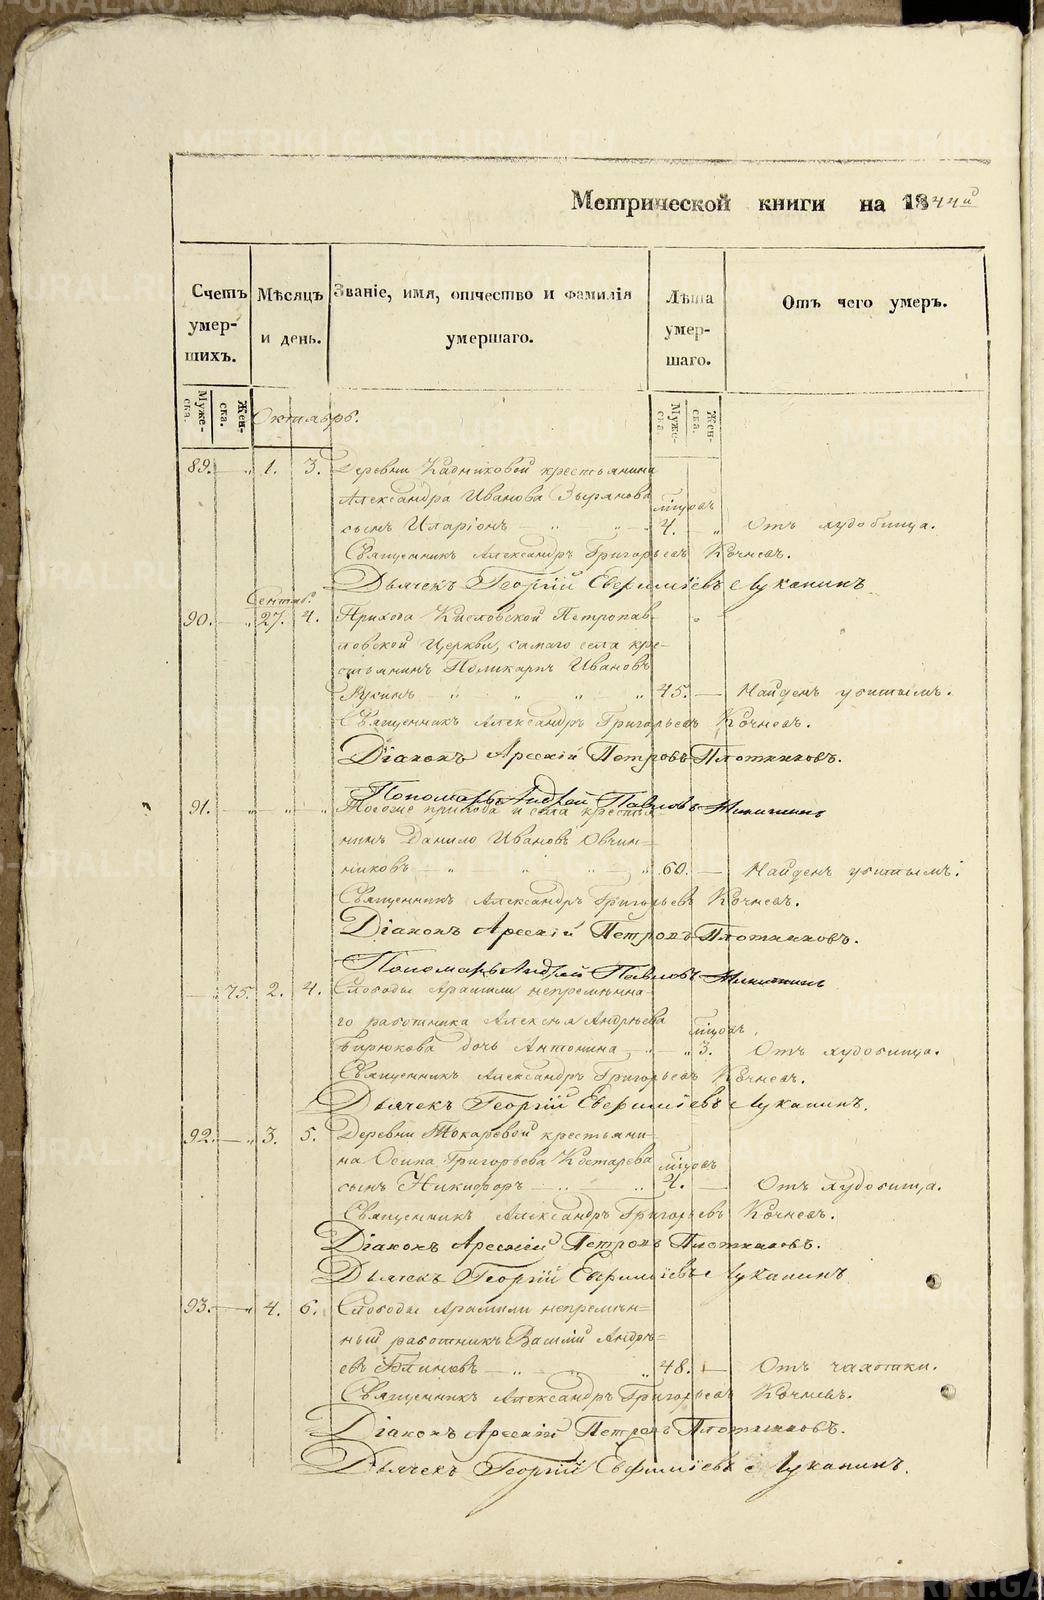 Метрической книги на 1844й
Счетъ умер-шихъ.
Мѣсяцъ и день.
Званіе, имя, отчество и фамилія умершаго.
Лѣта умер-шаго.
Отъ чего умеръ.
Муже-ска.
Жен-ска.
Муже-ска.
Жен-ска.
Октябрь.
89. — „ 1. 3. Деревни Кадниковой крестьянина
Александра Иванова Зырянова мѣсяцовъ
сынъ Иларіонъ — „ — „ 4. „ Отъ худобища.
Священникъ Александръ Григорьевъ Кочневъ.
Дьячекъ Георгій Евѳиміевъ Луканинъ
Сентяб.
90. — „ 27. 4. Прихода Кисловской Петропав-
ловской Церкви, самаго села кре-
стьянинъ Поликарпъ Ивановъ
Кукинъ — „ „ „ „ 45. — Найденъ убитымъ.
Священникъ Александръ Григорьевъ Кочневъ.
Діаконъ Арсеній Петровъ Плотниковъ.
Пономарь Андрей Павловъ Никитинъ
91. — „ „ „ Тогоже прихода и села крестья-
нинъ Данило Ивановъ Овчин=
никовъ — „ „ „ „ 60. — Найденъ убитымъ.
Священникъ Александръ Григорьевъ Кочневъ.
Діаконъ Арсеній Петровъ Плотниковъ.
Пономарь Андрей Павловъ Никитинъ
— 75. 2. 4. Слободы Арамили непремѣнна-
го работника Алексѣя Андрѣева мѣсяцовъ
Бирюкова дочь Антонина — „ — „ 3. Отъ худобища.
Священникъ Александръ Григорьевъ Кочневъ.
Дьячекъ Георгій Евѳиміевъ Луканинъ.
92. — „ 3. 5. Деревни Токаревой крестьяни-
на Осипа Григорьева Костарева мѣсяцовъ
сынъ Никифоръ — „ — „ 4. — Отъ худобища.
Священникъ Александръ Григорьевъ Кочневъ.
Діаконъ Арсеній Петровъ Плотниковъ.
Дьячекъ Георгій Евѳиміевъ Луканинъ
93. — „ 4. 6. Слободы Арамили непремѣн=
ный работникъ Василій Андрѣ=
евъ Блиновъ — „ — „ „ 48. — Отъ чахотки.
Священникъ Александръ Григорьевъ Кочневъ.
Діаконъ Арсеній Петровъ Плотниковъ.
Дьячекъ Георгій Евѳиміевъ Луканинъ.
METRIKI.GASO-URAL.RU